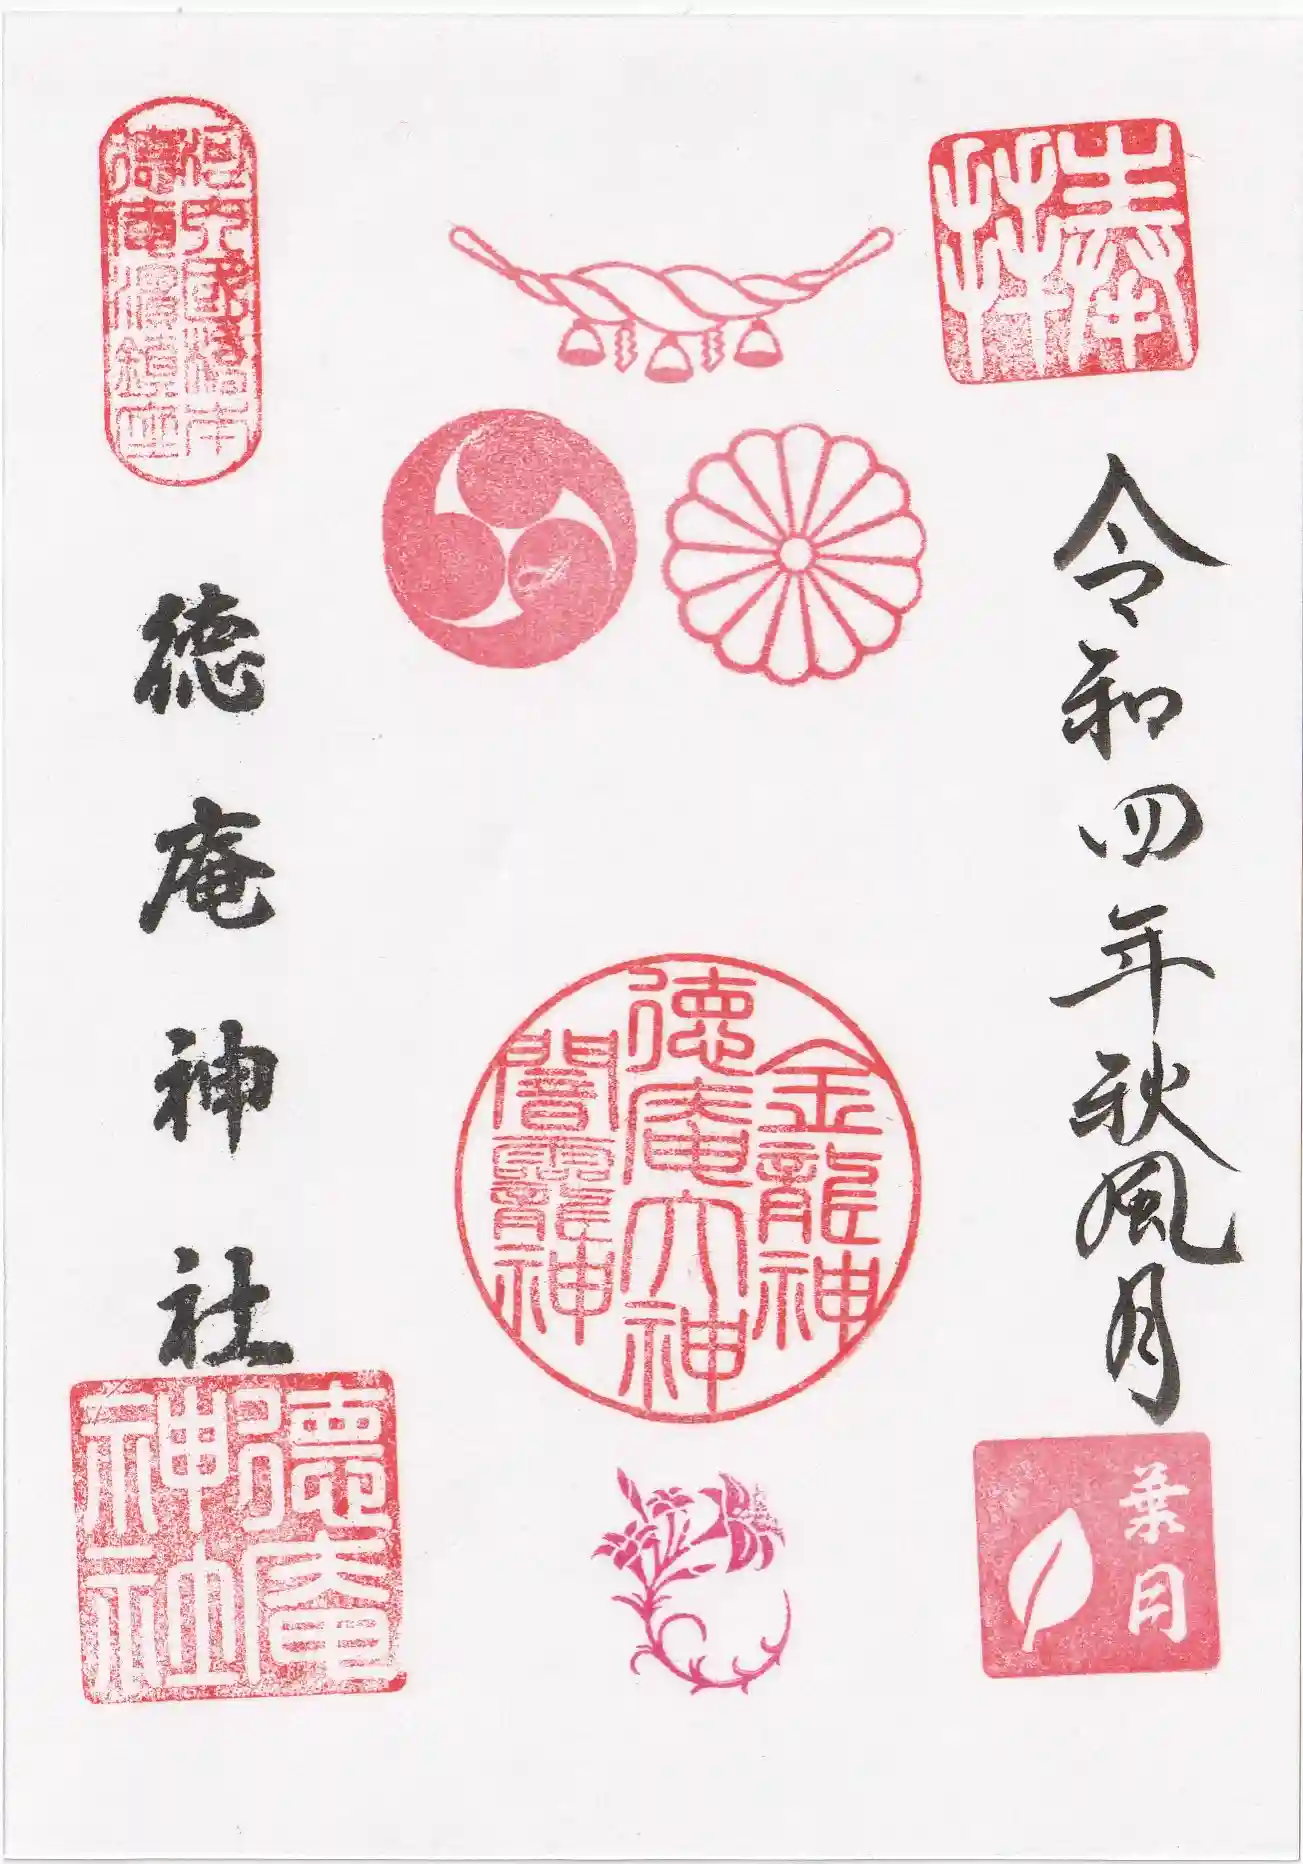 奉拝
令和四年秋風月
葉月
金龍神
徳庵大神
闇龗神
徳庵神社
徳庵神社